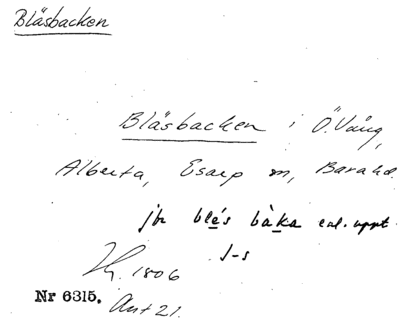 Bläsbacken
Bläsbacken i Ö. Vång,
Alberta, Esarp m, Barahd.
jfr blés bàka enl. uppt.
J-s
1806
Nr 6315. Ant 21.